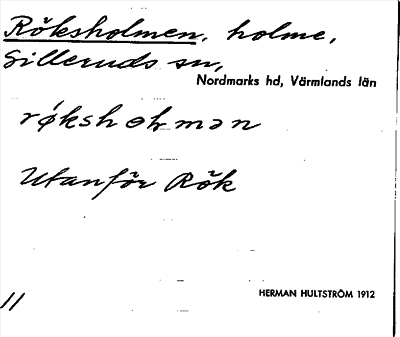 Röksholmen, holme,
Silleruds sn,
Nordmarks hd, Värmlands län
røkshɵlmən
Utanför Rök
HERMAN HULTSTRÖM 1912
11